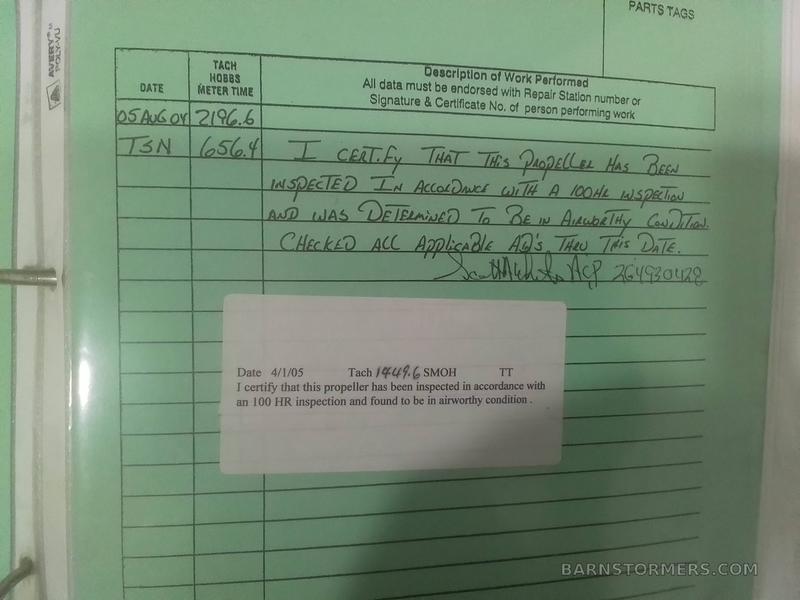 PARTS TAGS
AVERY®
POLY-VU
DATE
TACH
HOBBS
METER TIME
Description of Work Performed
All data must be endorsed with Repair Station number or
Signature & Certificate No. of person performing work
05 AUG 04 2196.6
TSN 656.4 I CERTIFY THAT THIS PROPELLER HAS BEEN
INSPECTED IN ACCORDANCE WITH A 100HR INSPECTION
AND WAS DETERMINED TO BE IN AIRWORTHY CONDITION.
CHECKED ALL APPLICABLE AD'S THRU THIS DATE.
A&P 264930428
Date 4/1/05 Tach 1449.6 SMOH TT
I certify that this propeller has been inspected in accordance with
an 100 HR inspection and found to be in airworthy condition .
BARNSTORMERS.COM